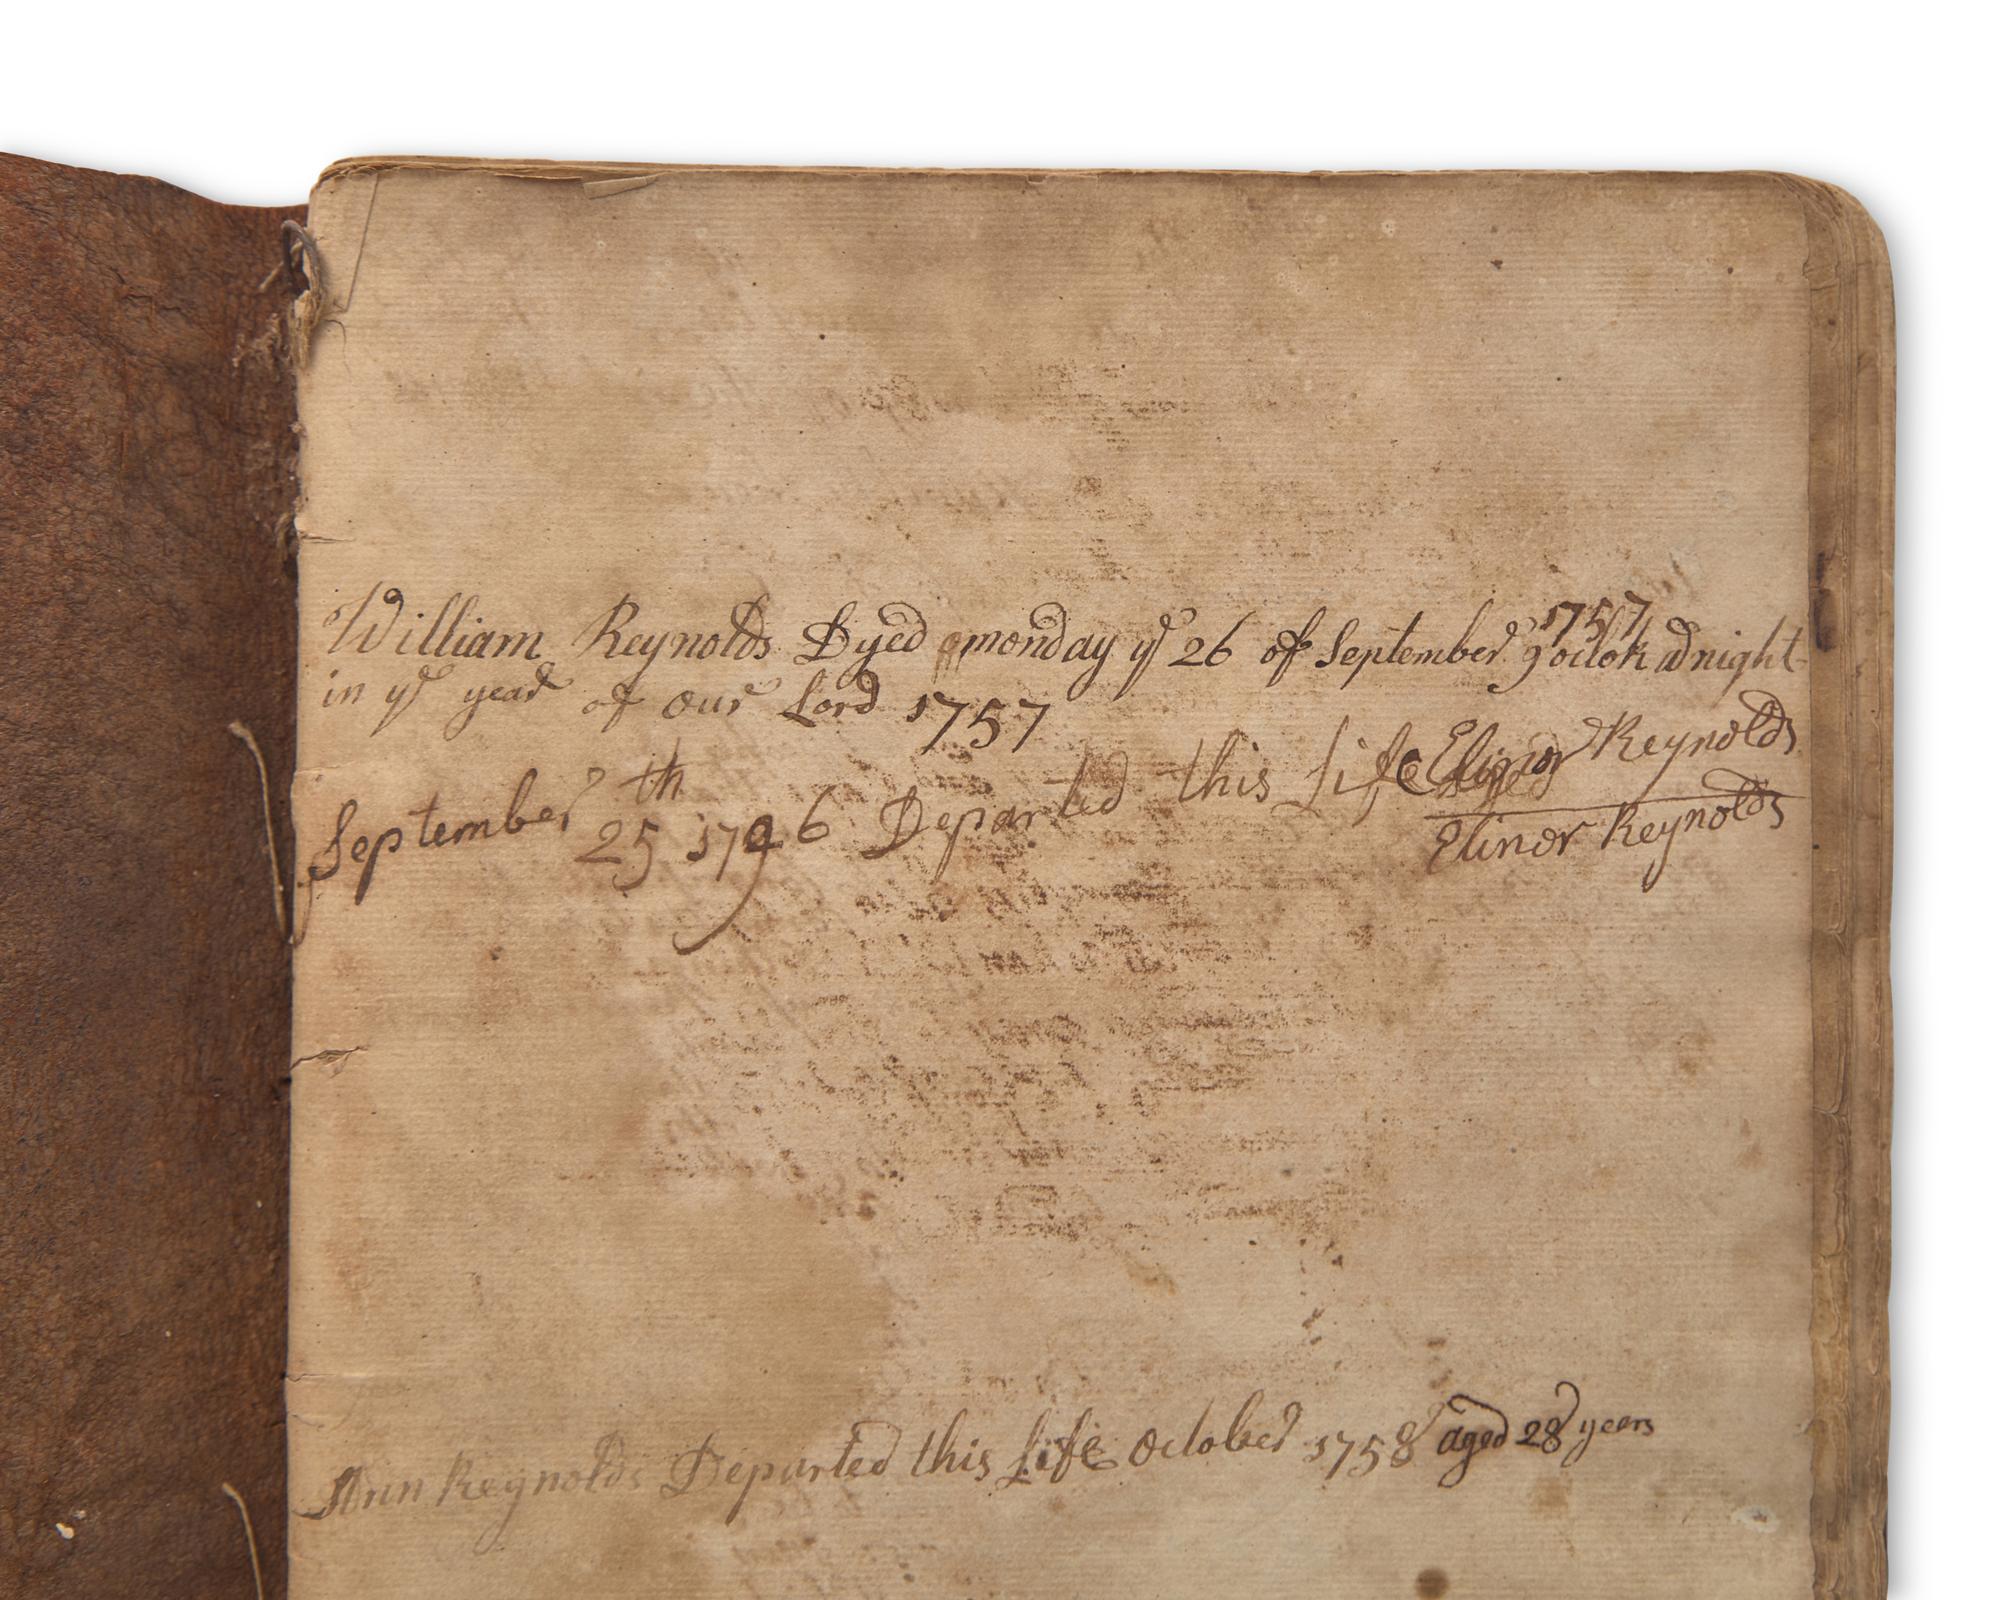 William Reynolds Dyed monday ye 26 of September 1757 9 oclok at night
in ye year of our Lord 1757
September 25th 1796 Departed this Life Elinor Reynolds
Elinor Reynolds
Ann Reynolds Departed this Life October 1758 aged 28 years